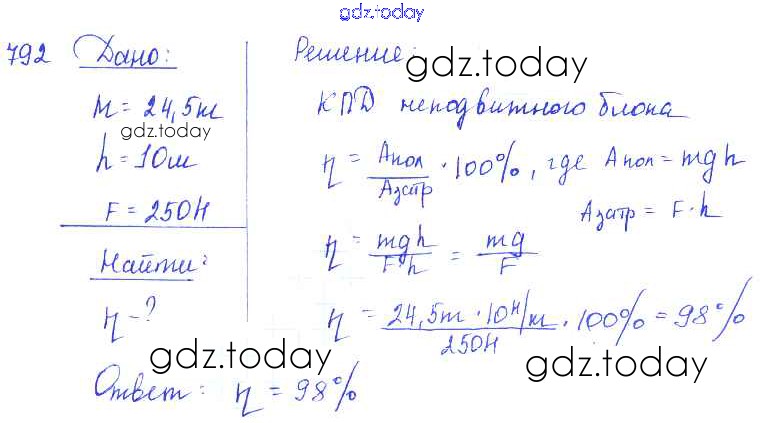 gdz.today
792 Дано:
M = 24,5кг
gdz.today
h = 10м
F = 250Н
Найти:
η - ?
Решение:
gdz.today
КПД неподвижного блока
η = Aпол / Aзатр · 100%, где Aпол = mgh
Aзатр = F·h
η = mgh / F·h = mg / F
η = 24,5т · 10 Н/кг / 250Н · 100% = 98%
gdz.today
gdz.today
Ответ: η = 98%